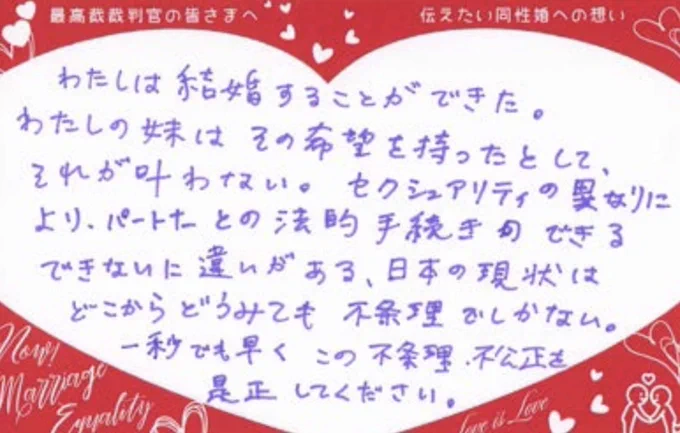 最高裁裁判官の皆さまへ
伝えたい同性婚への想い
わたしは結婚することができた。
わたしの妹はその希望を持ったとして、
それが叶わない。セクシュアリティの異なりに
より、パートナーとの法的手続きのできる
できないに違いがある、日本の現状は
どこからどうみても不条理でしかない。
一秒でも早くこの不条理、不公正を
是正してください。
Now!
Marriage
Equality
Love is Love